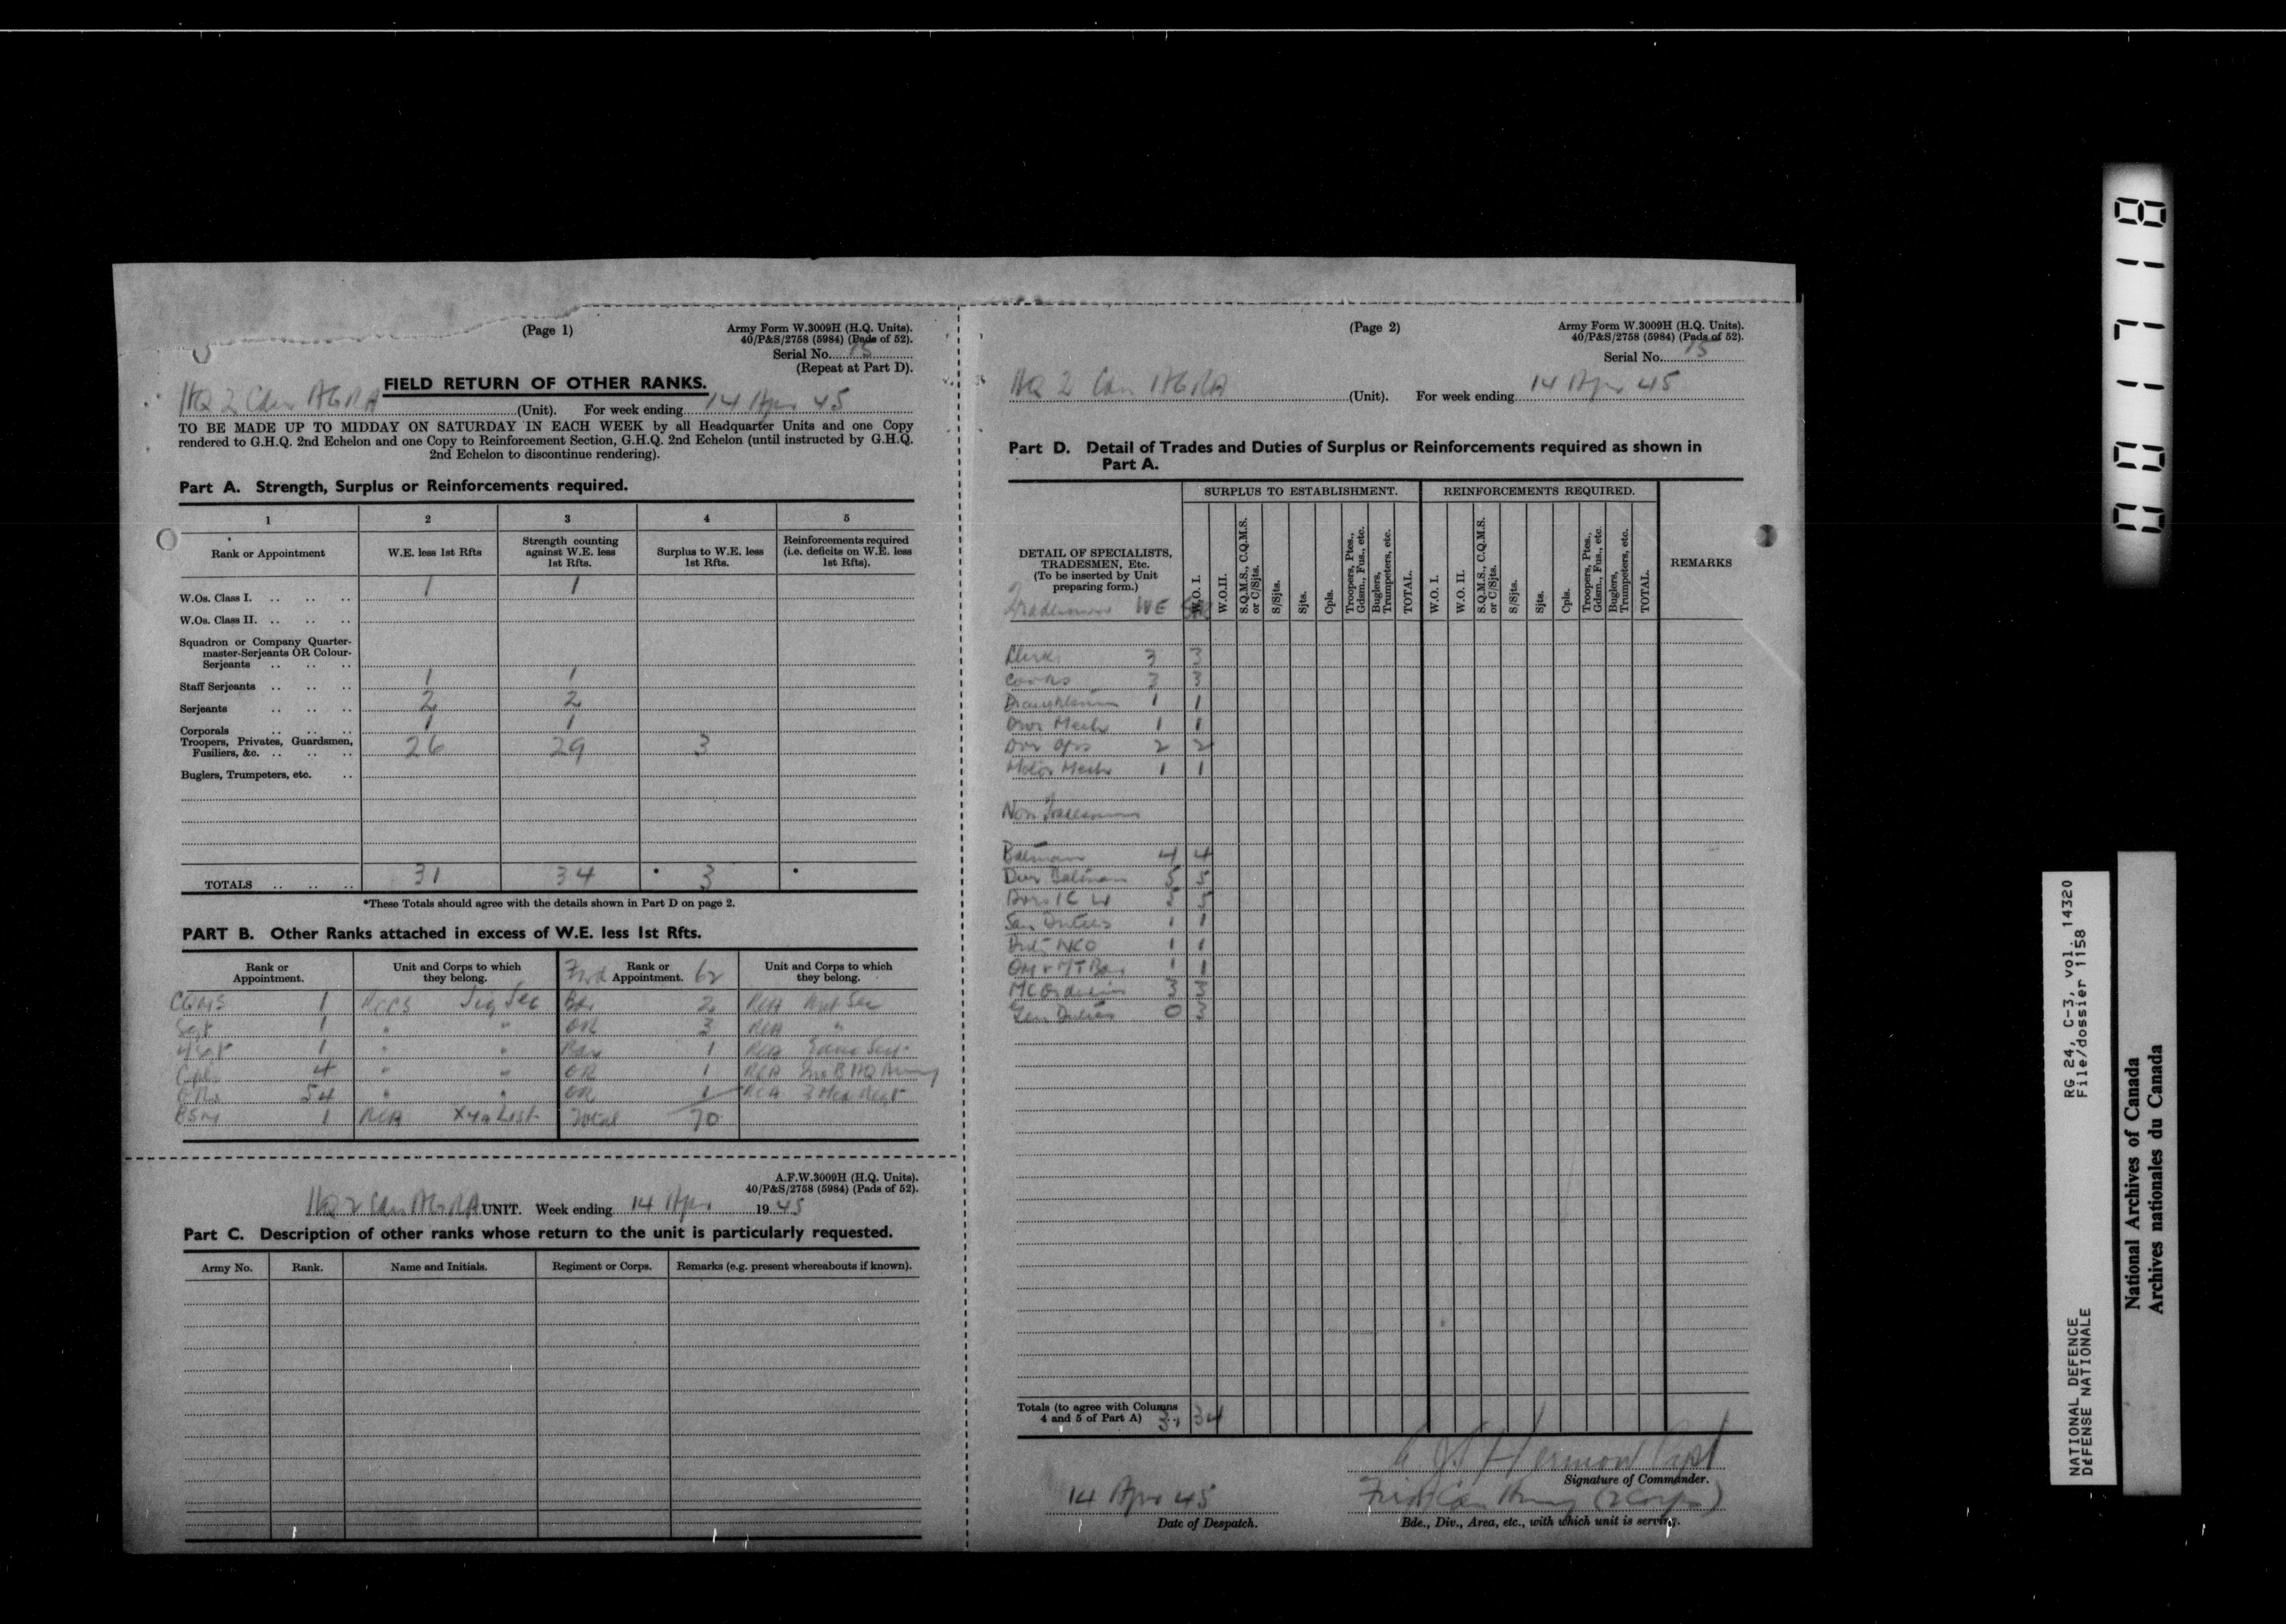 (Page 1)
Army Form W.3009H (H.Q. Units).
40/P&S/2758 (5984) (Pads of 52).
Serial No. 15
(Repeat at Part D).
FIELD RETURN OF OTHER RANKS.
HQ 2 Cdn AGRA (Unit). For week ending 14 Apr 45
TO BE MADE UP TO MIDDAY ON SATURDAY IN EACH WEEK by all Headquarter Units and one Copy
rendered to G.H.Q. 2nd Echelon and one Copy to Reinforcement Section, G.H.Q. 2nd Echelon (until instructed by G.H.Q.
2nd Echelon to discontinue rendering).
Part A. Strength, Surplus or Reinforcements required.
1 2 3 4 5
Rank or Appointment
W.E. less 1st Rfts
Strength counting against W.E. less 1st Rfts.
Surplus to W.E. less 1st Rfts.
Reinforcements required (i.e. deficits on W.E. less 1st Rfts).
W.Os. Class I. .. .. .. 1 1
W.Os. Class II. .. .. ..
Squadron or Company Quarter-
master-Serjeants OR Colour-
Serjeants .. .. ..
Staff Serjeants .. .. .. 1 1
Serjeants .. .. .. 2 2
Corporals .. .. .. 1 1
Troopers, Privates, Guardsmen,
Fusiliers, &c. .. .. .. 26 29 3
Buglers, Trumpeters, etc. ..
TOTALS .. .. .. 31 34 * 3 *
*These Totals should agree with the details shown in Part D on page 2.
PART B. Other Ranks attached in excess of W.E. less 1st Rfts.
Rank or Appointment.
Unit and Corps to which they belong.
Fwd Rank or Appointment. 62
Unit and Corps to which they belong.
CQMS 1 RCCS Sig Sec Bdr 2 RCA
Sgt 1 " " OR 3 RCA "
1 " " Bdr 1 RCA
Cpl 4 " " OR 1 RCA
54 " " OR 1 RCA 3 Med Regt
BSM 1 RCA X4a List Total 70
A.F.W.3009H (H.Q. Units).
40/P&S/2758 (5984) (Pads of 52).
HQ 2 Cdn AGRA UNIT. Week ending 14 Apr 1945
Part C. Description of other ranks whose return to the unit is particularly requested.
Army No. Rank. Name and Initials. Regiment or Corps. Remarks (e.g. present whereabouts if known).
(Page 2)
Army Form W.3009H (H.Q. Units).
40/P&S/2758 (5984) (Pads of 52).
Serial No. 15
HQ 2 Cdn AGRA (Unit). For week ending 14 Apr 45
Part D. Detail of Trades and Duties of Surplus or Reinforcements required as shown in
Part A.
SURPLUS TO ESTABLISHMENT. REINFORCEMENTS REQUIRED.
DETAIL OF SPECIALISTS,
TRADESMEN, Etc.
(To be inserted by Unit
preparing form.)
W.O. I.
W.O.II.
S.Q.M.S., C.Q.M.S. or C/Sjts.
S/Sjts.
Sjts.
Cpls.
Troopers, Ptes., Gdsm., Fus., etc.
Buglers, Trumpeters, etc.
TOTAL.
W.O. I.
W.O. II.
S.Q.M.S., C.Q.M.S. or C/Sjts.
S/Sjts.
Sjts.
Cpls.
Troopers, Ptes., Gdsm., Fus., etc.
Buglers, Trumpeters, etc.
TOTAL.
REMARKS
Tradesmen WE
Clerks 3 3
Cooks 3 3
Draughtsman 1 1
Dvr Mech 1 1
Dvr Ops 2 2
Motor Mech 1 1
Non Tradesmen
Batman 4 4
Dvr Batman 5 5
Dvrs IC 5 5
San Duties 1 1
NCO 1 1
1 1
MC Orderlies 3 3
Gen Duties 0 3
Totals (to agree with Columns
4 and 5 of Part A) 31 34
Hermon Capt
Signature of Commander.
14 Apr 45
Date of Despatch.
First Cdn Army (2 Corps)
Bde., Div., Area, etc., with which unit is serving.
001718
RG 24, C-3, vol. 14320
File/dossier 1158
NATIONAL DEFENCE
DEFENSE NATIONALE
National Archives of Canada
Archives nationales du Canada